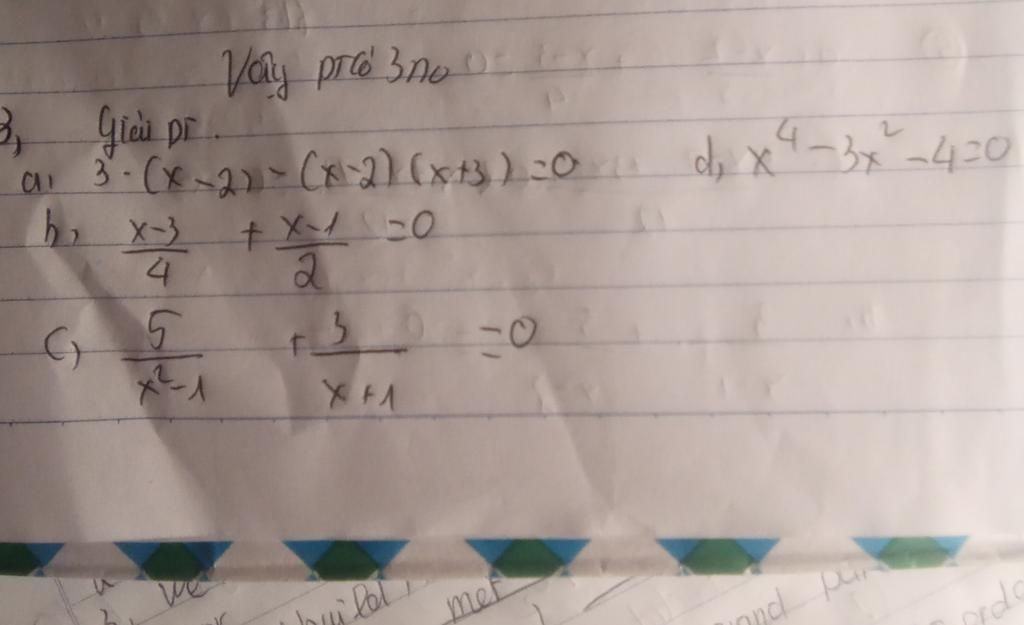 Vậy ptcó 3no
3, Giải pt.
a, 3.(x-2)-(x-2)(x+3)=0 d, x⁴-3x²-4=0
b, \frac{x-3}{4} + \frac{x-1}{2} =0
c, \frac{5}{x²-1} + \frac{3}{x+1} =0
we
build, met and